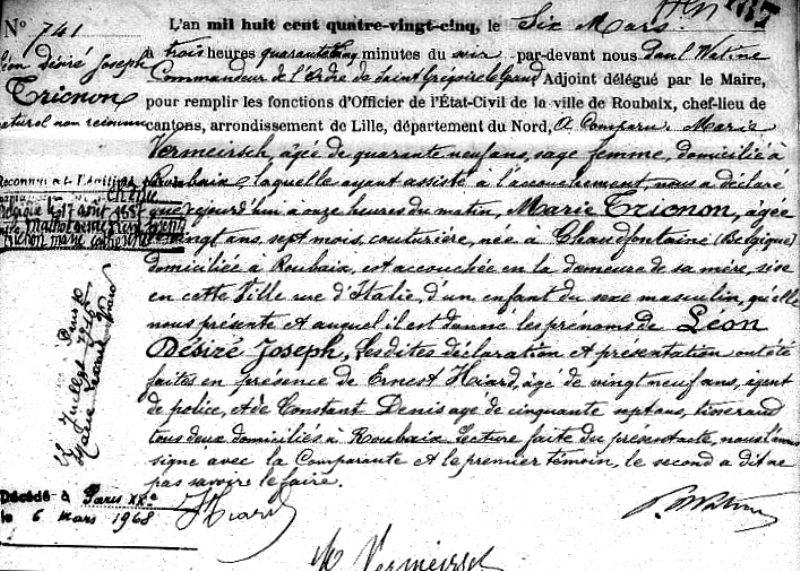 N° 741
L'an mil huit cent quatre-vingt-cinq, le Six Mars
à trois heures quarante cinq minutes du soir par-devant nous Paul Watine
Commandeur de l'Ordre de Saint Grégoire le Grand, Adjoint délégué par le Maire,
pour remplir les fonctions d'Officier de l'État-Civil de la ville de Roubaix, chef-lieu de
cantons, arrondissement de Lille, département du Nord, A Comparu Marie
Vermeirsch, âgée de quarante neuf ans, sage femme, domiciliée à
Roubaix, laquelle ayant assisté à l'accouchement, nous a déclaré
que cejourd'hui à onze heures du matin, Marie Tricnon, âgée
vingt ans, sept mois, couturière, née à Chaudfontaine (Belgique)
domiciliée à Roubaix, est accouchée en la demeure de sa mère, sise
en cette Ville rue d'Italie, d'un enfant du sexe masculin, qu'elle
nous présente et auquel il est donné les prénoms de Léon
Désiré Joseph, Lesdites déclaration et présentation ont été
faites en présence de Ernest Hiard, âgé de vingt neuf ans, agent
de police, et de Constant Denis agé de cinquante sept ans, tisserand
tous deux domiciliés à Roubaix Lecture faite du présent acte, nous l'avons
signé avec la Comparante et le premier témoin, le second a dit ne
pas savoir le faire.
Léon Désiré Joseph
Tricnon
naturel non reconnu
Belgique le 17 août 1887
22 Juillet
Marie
Décédé à Paris XXe
le 6 mars 1968
Hiard
P. Watine
M Vermeirsch